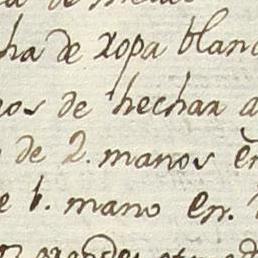 ha de ropa blanc
nos de hechar a
de 2. manos en
e 6. mano en.